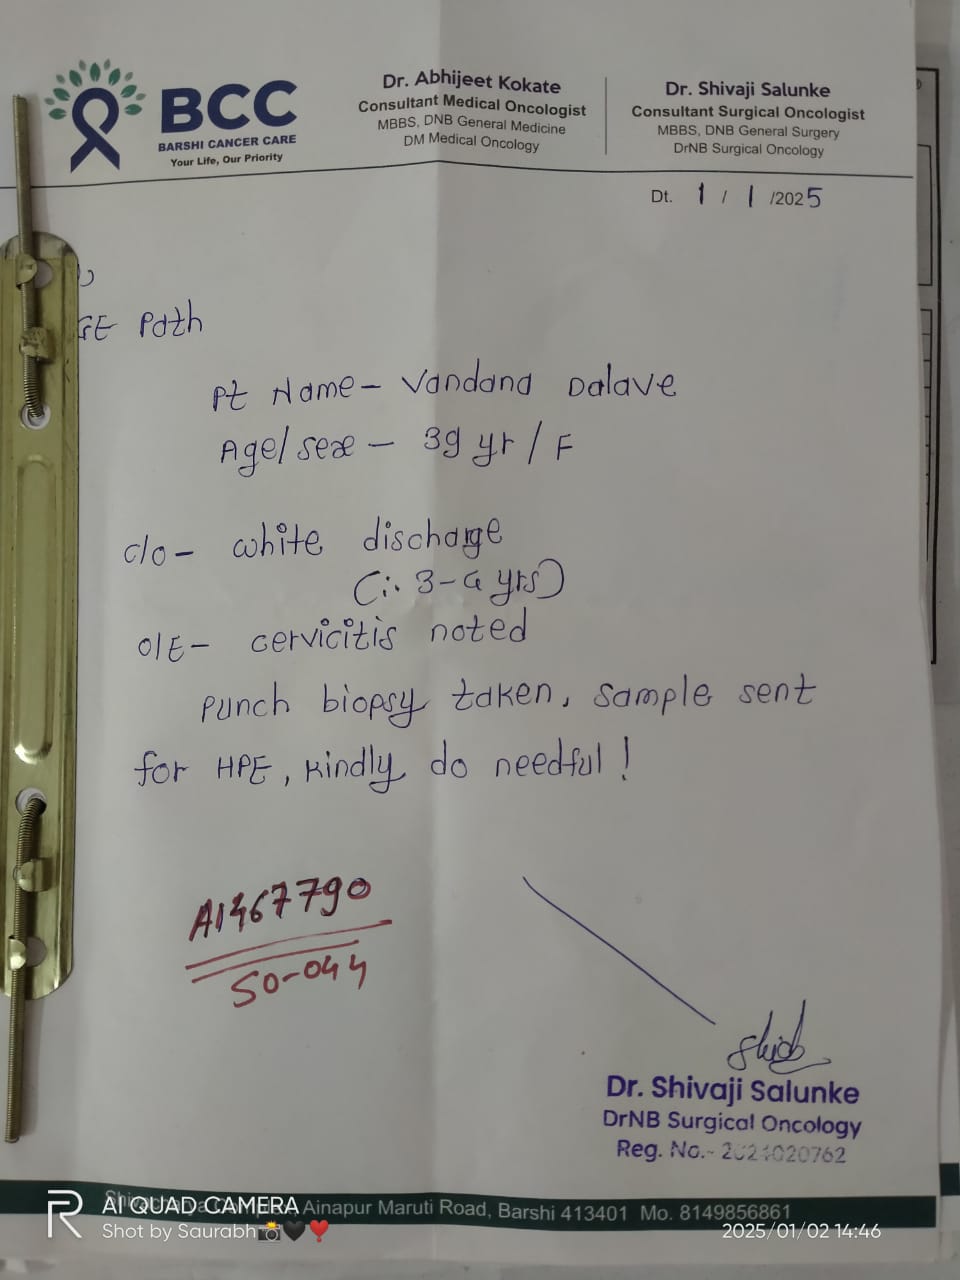 BCC
BARSHI CANCER CARE
Your Life, Our Priority
Dr. Abhijeet Kokate
Consultant Medical Oncologist
MBBS, DNB General Medicine
DM Medical Oncology
Dr. Shivaji Salunke
Consultant Surgical Oncologist
MBBS, DNB General Surgery
DrNB Surgical Oncology
Dt. 1 / 1 /2025
Path
Pt Name - Vandana Dalave
Age/sex - 39 yr / F
c/o - white discharge
3-4 yrs)
O/E - cervicitis noted
Punch biopsy taken, sample sent
for HPE, kindly do needful !
A1467790
SO-044
Dr. Shivaji Salunke
DrNB Surgical Oncology
Reg. No.- 2021020762
Ainapur Maruti Road, Barshi 413401 Mo. 8149856861
AI QUAD CAMERA
Shot by Saurabh📸🖤❣️
2025/01/02 14:46